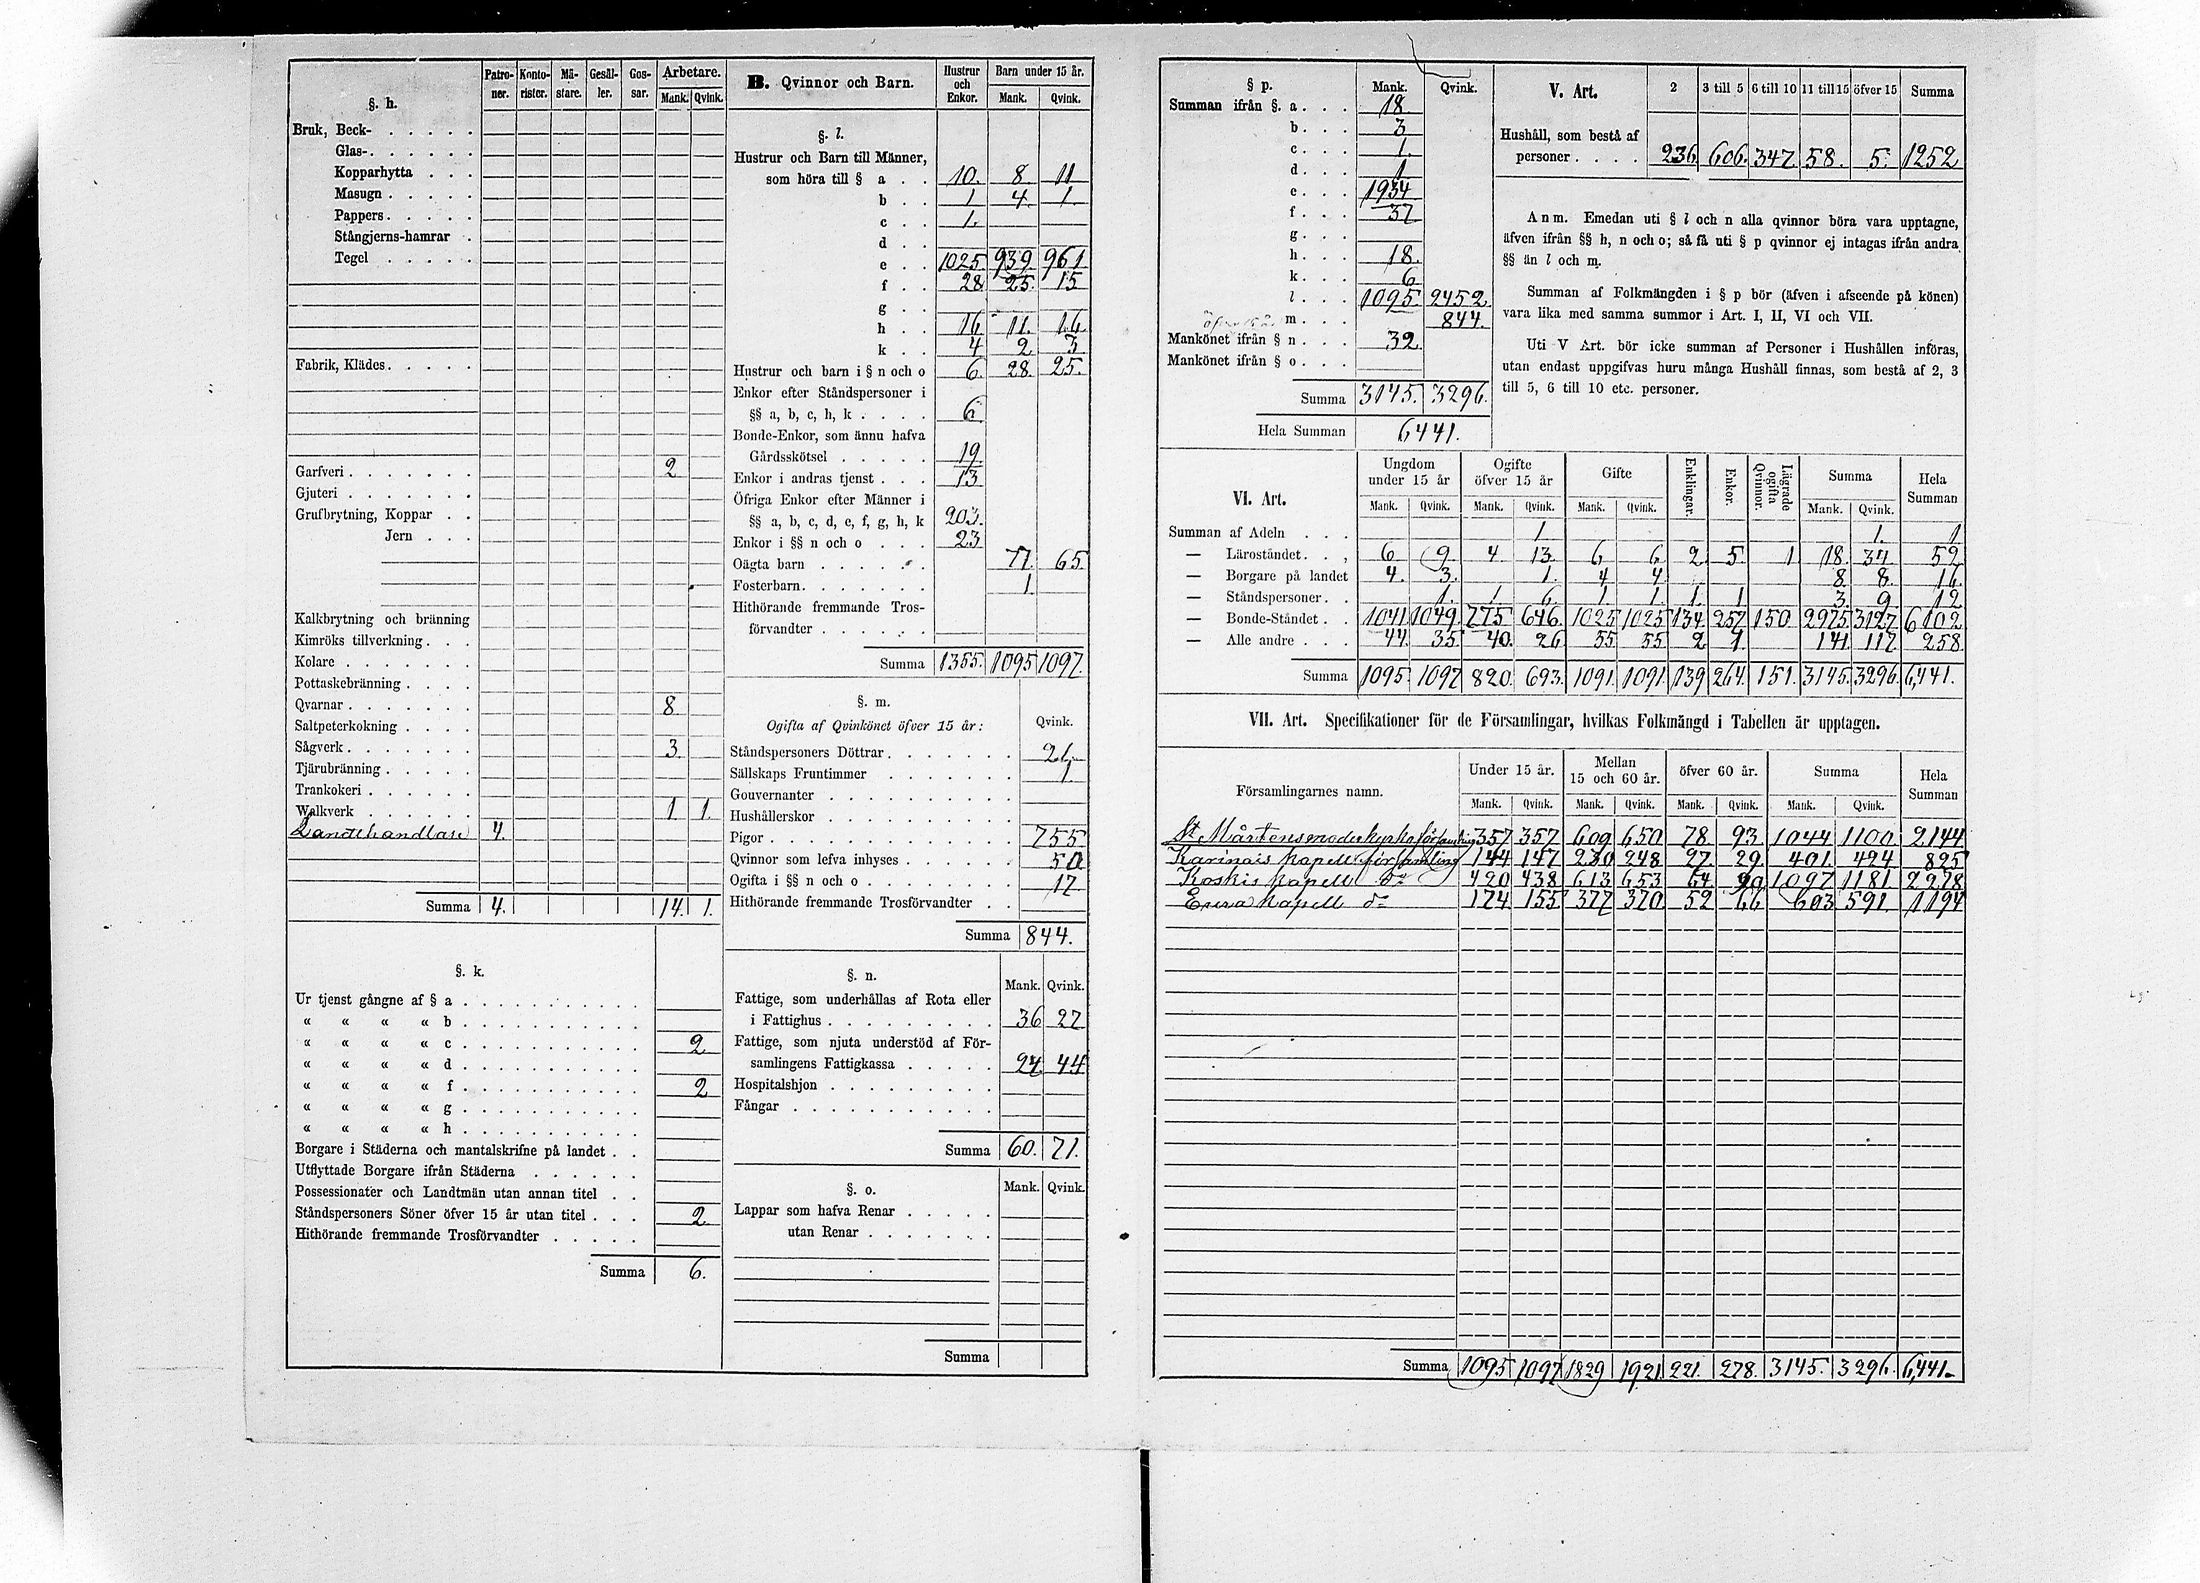 §. h. Patroner. Kontorister. Mästare. Gesäller. Gossar. Arbetare. Mank. Qvink.
Bruk, Beck-
Glas-
Kopparhytta
Masugn
Pappers
Stångjerns-hamrar
Tegel
Fabrik, Klädes
Garfveri 2
Gjuteri
Grufbrytning, Koppar
Jern
Kalkbrytning och bränning
Kimröks tillverkning
Kolare
Pottaskebränning
Qvarnar 8
Saltpeterkokning
Sågverk 3.
Tjärubränning
Trankokeri
Walkverk 1 1.
Landthandlare 4.
Summa 4. 14. 1.
§. k.
Ur tjenst gångne af § a
« « « « b
« « « « c 2
« « « « d
« « « « f 2
« « « « g
« « « « h
Borgare i Städerna och mantalskrifne på landet
Utflyttade Borgare ifrån Städerna
Possessionater och Landtmän utan annan titel
Ståndspersoners Söner öfver 15 år utan titel 2
Hithörande fremmande Trosförvandter
Summa 6.
B. Qvinnor och Barn. Hustrur och Enkor. Barn under 15 år. Mank. Qvink.
§. l.
Hustrur och Barn till Männer,
som höra till § a 10. 8. 11
b 1 4. 1.
c 1.
d
e 1025. 939. 961
f 28 25. 15
g
h 16 11. 16
k 4 2 3
Hustrur och barn i § n och o 6. 28. 25.
Enkor efter Ståndspersoner i
§§ a, b, c, h, k 6
Bonde-Enkor, som ännu hafva
Gårdsskötsel 19
Enkor i andras tjenst 13
Öfriga Enkor efter Männer i
§§ a, b, c, d, e, f, g, h, k 203.
Enkor i §§ n och o 23
Oägta barn 77. 65.
Fosterbarn 1.
Hithörande fremmande Trosförvandter
Summa 1355. 1095 1097.
§. m.
Ogifta af Qvinkönet öfver 15 år: Qvink.
Ståndspersoners Döttrar 21
Sällskaps Fruntimmer 1
Gouvernanter
Hushållerskor
Pigor 755
Qvinnor som lefva inhyses 50
Ogifta i §§ n och o 17
Hithörande fremmande Trosförvandter
Summa 844.
§. n. Mank. Qvink.
Fattige, som underhållas af Rota eller
i Fattighus 36 27
Fattige, som njuta understöd af Församlingens Fattigkassa 24 44
Hospitalshjon
Fångar
Summa 60. 71.
§. o. Mank. Qvink.
Lappar som hafva Renar
utan Renar
Summa
§ p. Mank. Qvink.
Summan ifrån §. a 18
b 3
c 1.
d 1
e 1934
f 37
g
h 18.
k 6
l 1095. 2452
m 844.
Mankönet ifrån § n 32
Mankönet ifrån § o
Summa 3145. 3296.
Hela Summan 6441.
V. Art. 2 3 till 5 6 till 10 11 till 15 öfver 15 Summa
Hushåll, som bestå af
personer 236 606. 347. 58. 5. 1252
Anm. Emedan uti § l och n alla qvinnor böra vara upptagne,
äfven ifrån §§ h, n och o; så få uti § p qvinnor ej intagas ifrån andra
§§ än l och m.
Summan af Folkmängden i § p bör (äfven i afseende på könen)
vara lika med samma summor i Art. I, II, VI och VII.
Uti V Art. bör icke summan af Personer i Hushållen införas,
utan endast uppgifvas huru många Hushåll finnas, som bestå af 2, 3
till 5, 6 till 10 etc. personer.
VI. Art. Ungdom under 15 år Ogifte öfver 15 år Gifte Enklingar. Enkor. Lägrade ogifta Qvinnor. Summa Hela Summan
Mank. Qvink. Mank. Qvink. Mank. Qvink. Mank. Qvink.
Summan af Adeln 1 1. 1
— Läroståndet 6 9 4 13. 6 6 2 5 1 18. 34 52
— Borgare på landet 4. 3. 1. 4 4 8 8. 16
— Ståndspersoner 1. 1 6 1. 1. 1. 1 3. 9 12
— Bonde-Ståndet 1041 1049 775 646. 1025 1025 134 257 150 2975 3127 6102
— Alle andre 44. 35 40. 26 55 55 2 1. 141 117. 258
Summa 1095. 1097 820. 693. 1091. 1091 139 264. 151. 3145. 3296. 6,441.
VII. Art. Specifikationer för de Församlingar, hvilkas Folkmängd i Tabellen är upptagen.
Församlingarnes namn. Under 15 år. Mellan 15 och 60 år. öfver 60 år. Summa Hela Summan
Mank. Qvink. Mank. Qvink. Mank. Qvink. Mank. Qvink.
St Mårtens moderkyrkoförsamling 357 357 609 650 78 93 1044 1100 2144
Karinais kapellförsamling 144 147 230 248 27 29 401. 424 825
Koskis kapell do 420 438 613 653 64 90 1097 1181 2278
Eura kapell do 174 155 377 370 52 66 603 591. 1194
Summa 1095 1097 1829 1921 221. 278. 3145. 3296. 6,441.